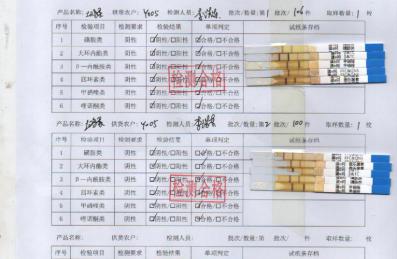 产品名称: 供货农户: 4205 检测人员: 批次/数量:第1 批次/ 件 取样数量: 1 枚
序号 检验项目 检测要求 检验结果 单项判定 试纸条存档
1 磺胺类 阴性 ☑阴性/□阳性 ☑合格/□不合格
2 大环内酯类 阴性 ☑阴性/□阳性 ☑合格/□不合格
3 β-内酰胺类 阴性 ☑阴性/□阳性 ☑合格/□不合格
4 四环素类 阴性 ☑阴性/□阳性 ☑合格/□不合格
5 甲硝唑类 阴性 ☑阴性/□阳性 ☑合格/□不合格
6 喹诺酮类 阴性 ☑阴性/□阳性 ☑合格/□不合格
检测合格
产品名称: 供货农户: 4205 检测人员: 批次/数量:第2 批次/ 100 件 取样数量: 1 枚
序号 检验项目 检测要求 检验结果 单项判定 试纸条存档
1 磺胺类 阴性 ☑阴性/□阳性 ☑合格/□不合格
2 大环内酯类 阴性 ☑阴性/□阳性 ☑合格/□不合格
3 β-内酰胺类 阴性 ☑阴性/□阳性 ☑合格/□不合格
4 四环素类 阴性 ☑阴性/□阳性 ☑合格/□不合格
5 甲硝唑类 阴性 ☑阴性/□阳性 ☑合格/□不合格
6 喹诺酮类 阴性 ☑阴性/□阳性 ☑合格/□不合格
检测合格
产品名称: 供货农户: 检测人员: 批次/数量:第 批次/ 件 取样数量: 枚
序号 检验项目 检测要求 检验结果 单项判定 试纸条存档